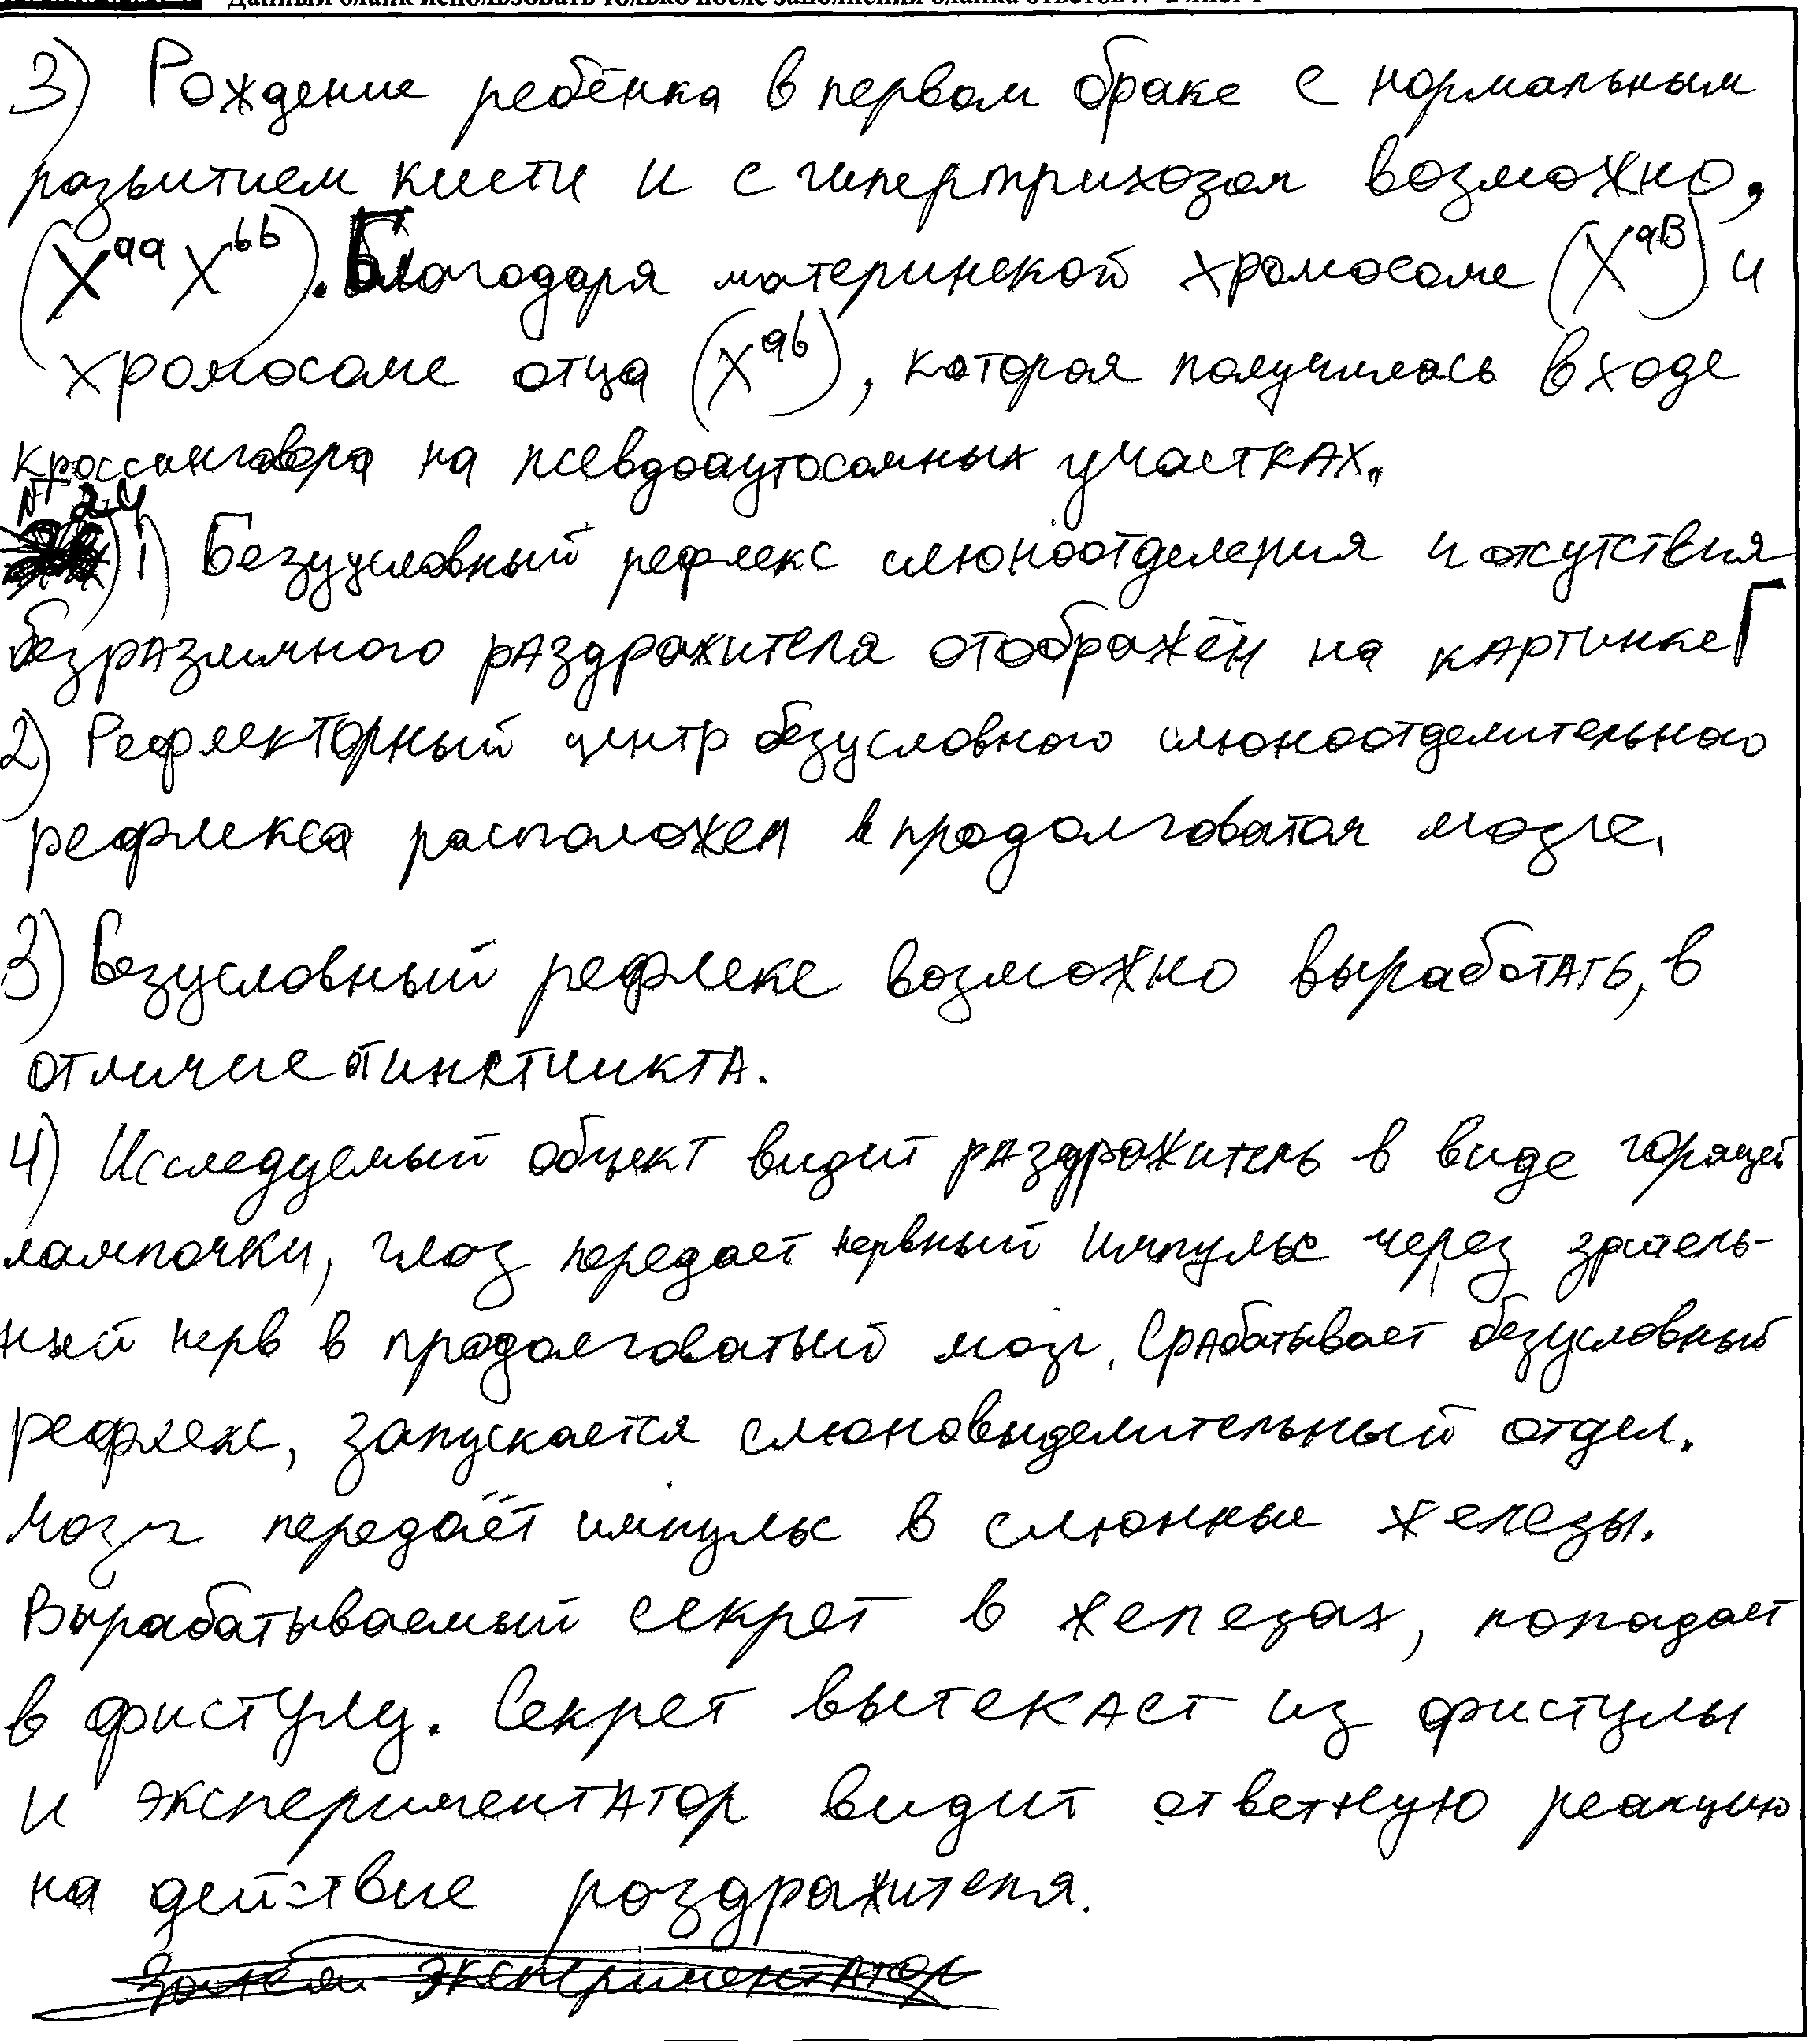 Данный бланк использовать только после заполнения бланка ответов № 2 лист 1
3) Рождение ребёнка в первом браке с нормальным
развитием кисти и с гипертрихозом возможно,
(X^aa X^bb). Благодаря материнской хромосоме (X^aB) и
хромосоме отца (X^ab), которая получилась в ходе
кроссинговера на псевдоаутосомных участках.
№ 24
1) Безусловный рефлекс слюноотделения и отсутствия
безразличного раздражителя отображён на картинке Г
2) Рефлекторный центр безусловного слюноотделительного
рефлекса расположен в продолговатом мозге.
3) Безусловный рефлекс возможно выработать, в
отличие от инстинкта.
4) Исследуемый объект видит раздражитель в виде горящей
лампочки, глаз передает нервный импульс через зритель-
ный нерв в продолговатый мозг. Срабатывает безусловный
рефлекс, запускается слюновыделительный отдел.
Мозг передаёт импульс в слюнные железы.
Вырабатываемый секрет в железах, попадает
в фистулу. Секрет вытекает из фистулы
и экспериментатор видит ответную реакцию
на действие раздражителя.
Затем экспериментатор